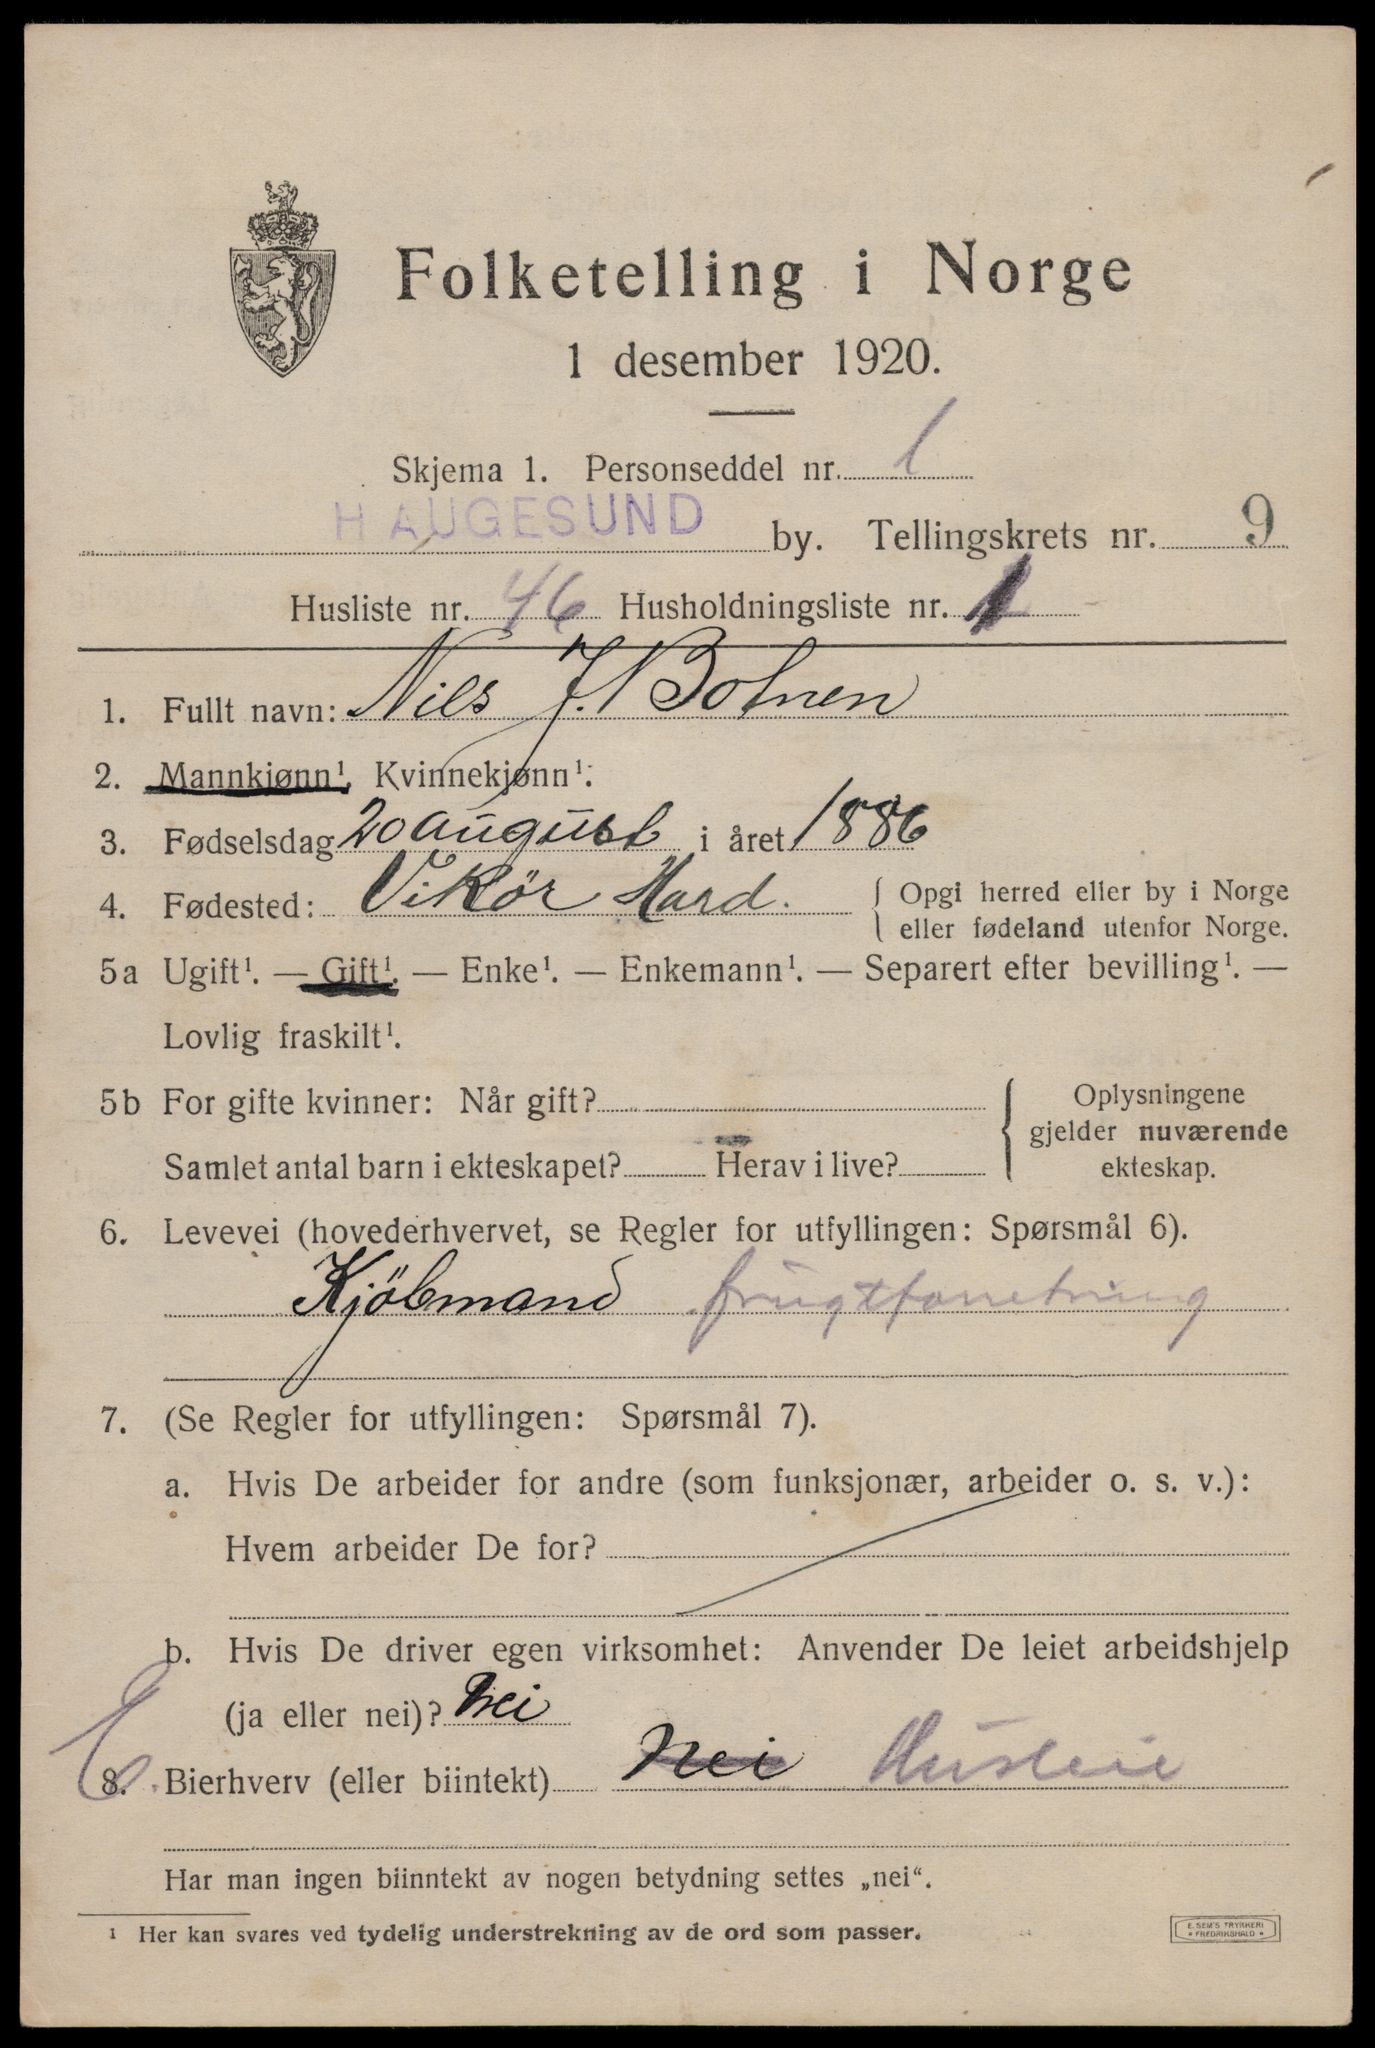 Folketelling i Norge
1 desember 1920.
Skjema 1. Personseddel nr. 1
HAUGESUND by. Tellingskrets nr. 9
Husliste nr. 46 Husholdningsliste nr. 1
1. Fullt navn: Nils J. Botnen
2. Mannkjønn¹. Kvinnekjønn¹.
3. Fødselsdag 20 august i året 1886
4. Fødested: Vikör Hard. { Opgi herred eller by i Norge
eller fødeland utenfor Norge.
5a Ugift¹. — Gift¹. — Enke¹. — Enkemann¹. — Separert efter bevilling¹. —
Lovlig fraskilt¹.
5b For gifte kvinner: Når gift?
Samlet antal barn i ekteskapet? Herav i live?
Oplysningene
gjelder nuværende
ekteskap.
6. Levevei (hovederhvervet, se Regler for utfyllingen: Spørsmål 6).
Kjöbmand frugtforretning
7. (Se Regler for utfyllingen: Spørsmål 7).
a. Hvis De arbeider for andre (som funksjonær, arbeider o. s. v.):
Hvem arbeider De for?
b. Hvis De driver egen virksomhet: Anvender De leiet arbeidshjelp
(ja eller nei)? Nei
8. Bierhverv (eller biintekt) Nei Husleie
Har man ingen biinntekt av nogen betydning settes „nei“.
¹ Her kan svares ved tydelig understrekning av de ord som passer.
E. SEM'S TRYKKERI
* FREDRIKSHALD *